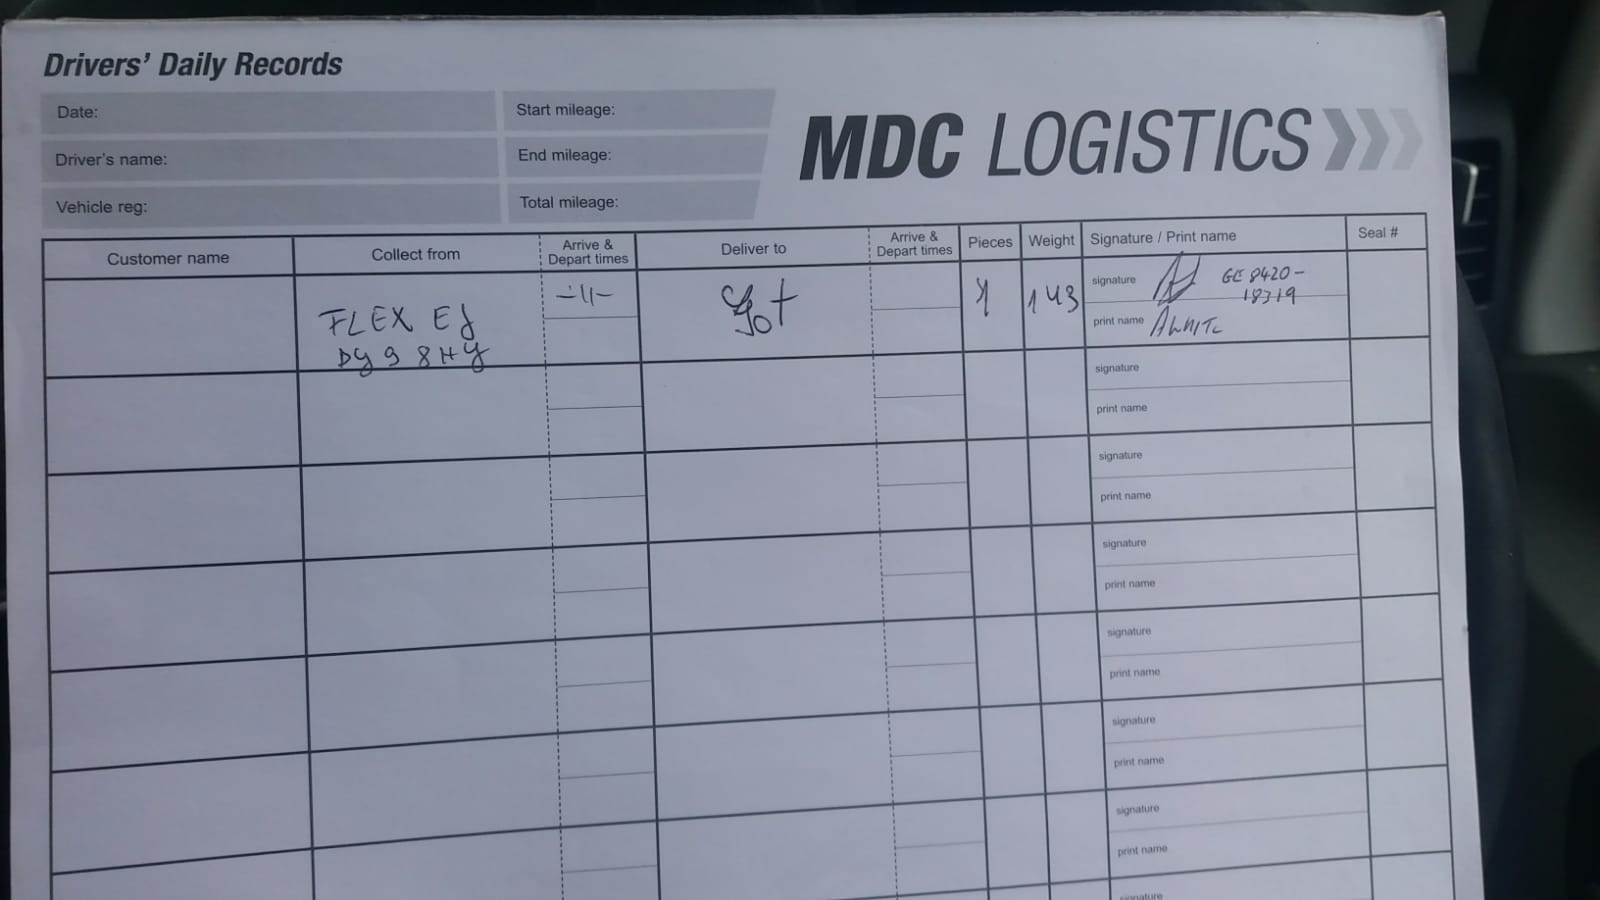 Drivers' Daily Records
Date:
Start mileage:
Driver's name:
End mileage:
Vehicle reg:
Total mileage:
MDC LOGISTICS
Customer name
Collect from
Arrive &
Depart times
Deliver to
Arrive &
Depart times
Pieces
Weight
Signature / Print name
Seal #
FLEX EJ
DY9 8HY
-11-
1
143
signature
GE 8420-
18319
print name
signature
print name
signature
print name
signature
print name
signature
print name
signature
print name
signature
print name
signature